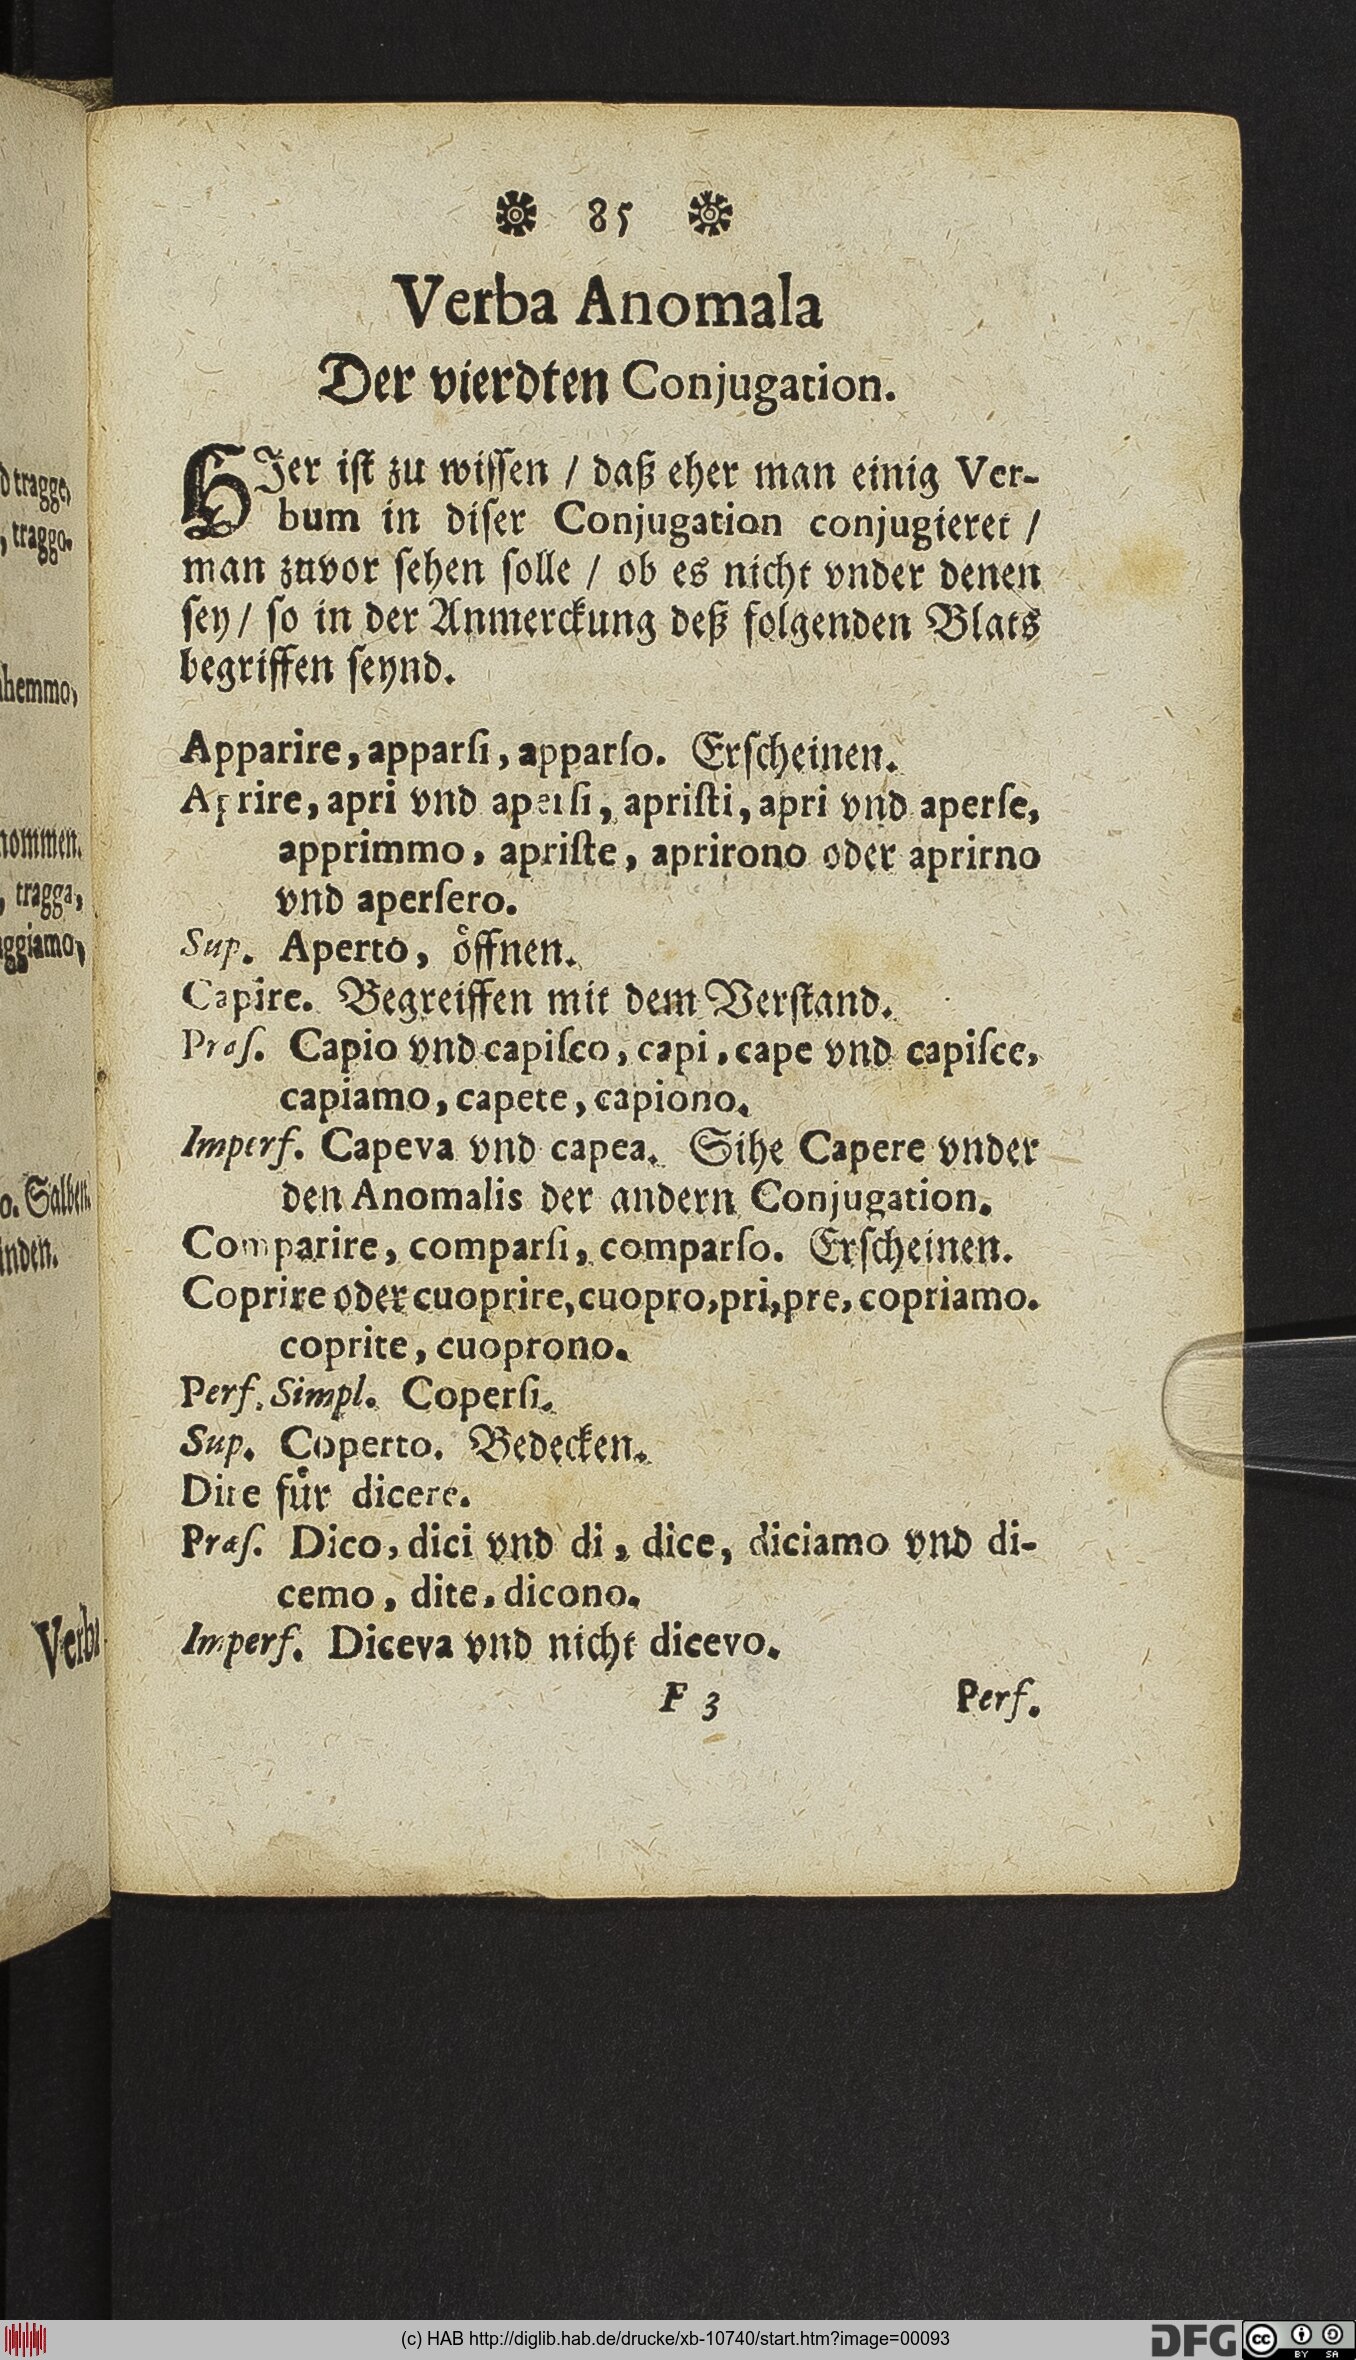 d tragge,
, traggo.
hemmo,
nommen.
, tragga,
ggiamo,
o. Salben.
inden.
Verba
85
Verba Anomala
Der vierdten Conjugation.
HJer iſt zu wiſſen / daß eher man einig Ver-
bum in diſer Conjugation conjugieret /
man zuvor ſehen ſolle / ob es nicht vnder denen
ſey / ſo in der Anmerckung deß folgenden Blats
begriffen ſeynd.
Apparire, apparſi, apparſo. Erſcheinen.
Aprire, apri vnd aperſi, apriſti, apri vnd aperſe,
apprimmo, apriſte, aprirono oder aprirno
vnd aperſero.
Sup. Aperto, oͤffnen.
Capire. Begreiffen mit dem Verſtand.
Præſ. Capio vnd capiſco, capi, cape vnd capiſce,
capiamo, capete, capiono.
Imperf. Capeva vnd capea. Sihe Capere vnder
den Anomalis der andern Conjugation.
Comparire, comparſi, comparſo. Erſcheinen.
Coprire oder cuoprire, cuopro, pri, pre, copriamo.
coprite, cuoprono.
Perf. Simpl. Coperſi.
Sup. Coperto. Bedecken.
Dire fuͤr dicere.
Præſ. Dico, dici vnd di, dice, diciamo vnd di-
cemo, dite, dicono.
Imperf. Diceva vnd nicht dicevo.
F 3 Perf.
(c) HAB http://diglib.hab.de/drucke/xb-10740/start.htm?image=00093
DFG
cc BY SA